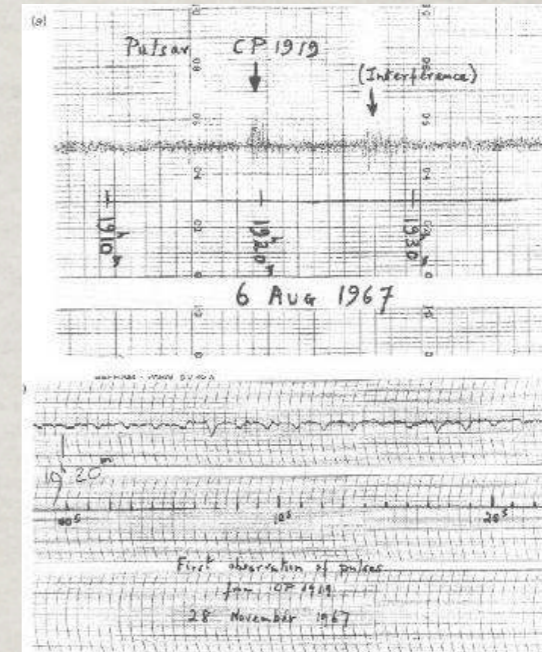 (a)
Pulsar CP 1919
(Interference)
19h10m
19h20m
19h30m
6 AUG 1967
19h 20m
00s 10s 20s
First observation of pulses
from CP 1919
28 November 1967